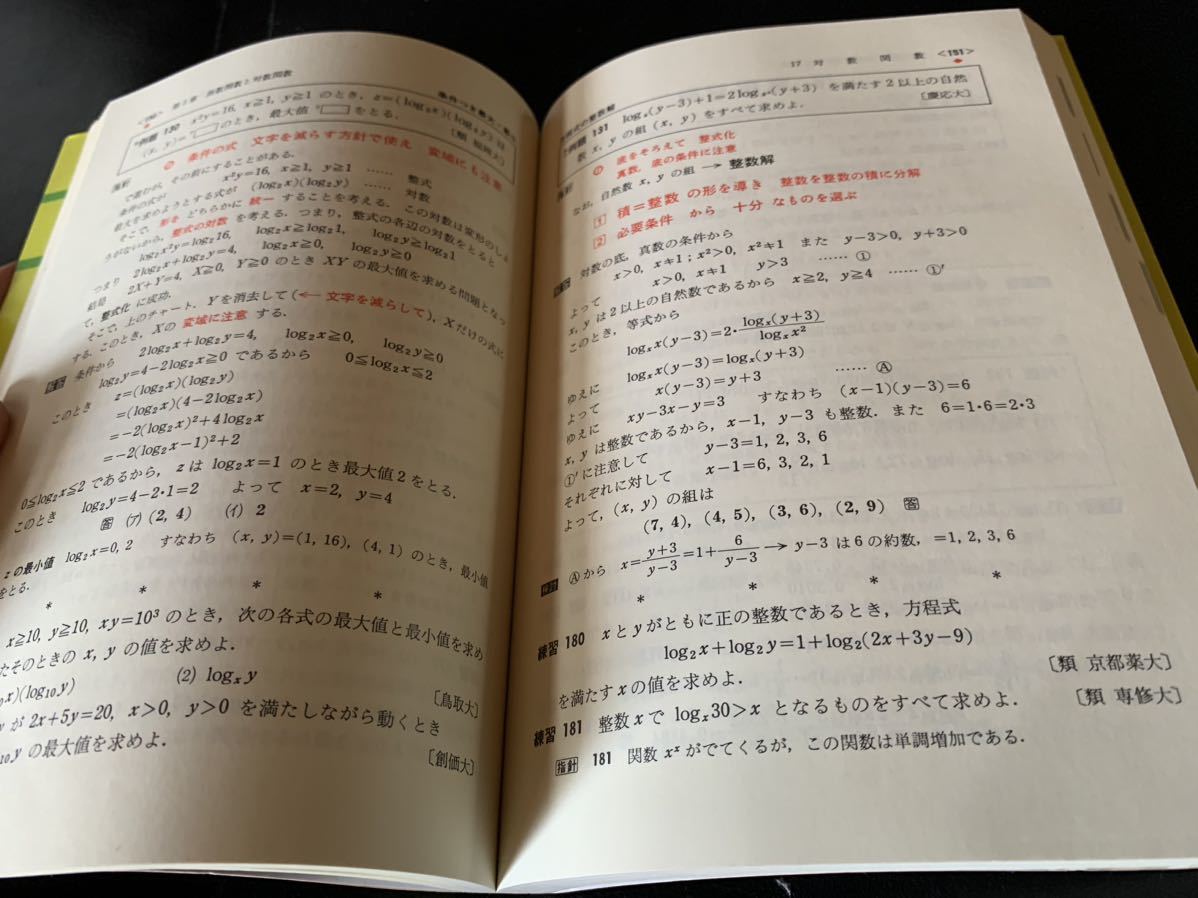 第3章 指数関数と対数関数
例題 130 x²y=16, x≧1, y≧1 のとき, z=(log₂x)(log₂y) は
(x, y)= のとき, 最大値 をとる.
条件の式 文字を減らす方針で使え 変域にも注意
x²y=16, x≧1, y≧1 …… 整式
最大を求めようとする式が (log₂x)(log₂y) …… 対数
そこで, 形を どちらかに 統一 することを考える. この対数は変形のしよ
うがないから, 整式の対数 を考える. つまり, 整式の各辺の対数をとると
log₂x²y=log₂16, log₂x≧log₂1, log₂y≧log₂1
つまり 2log₂x+log₂y=4, log₂x≧0, log₂y≧0
結局 2X+Y=4, X≧0, Y≧0 のとき XY の最大値を求める問題となっ
て, 整式化 に成功.
そこで, 上のチャート. Y を消去して(← 文字を減らして), X だけの式に
する. このとき, X の 変域に注意 する.
条件から 2log₂x+log₂y=4, log₂x≧0, log₂y≧0
log₂y=4−2log₂x≧0 であるから 0≦log₂x≦2
このとき z=(log₂x)(log₂y)
=(log₂x)(4−2log₂x)
=−2(log₂x)²+4log₂x
=−2(log₂x−1)²+2
0≦log₂x≦2 であるから, z は log₂x=1 のとき最大値 2 をとる.
このとき log₂y=4−2·1=2 よって x=2, y=4
答 (ア) (2, 4) (イ) 2
z の最小値 log₂x=0, 2 すなわち (x, y)=(1, 16), (4, 1) のとき, 最小値
をとる.
* * * *
x≧10, y≧10, xy=10³ のとき, 次の各式の最大値と最小値を求め
たそのときの x, y の値を求めよ.
x)(log₁₀y) (2) logₓy 〔鳥取大〕
が 2x+5y=20, x>0, y>0 を満たしながら動くとき
y の最大値を求めよ. 〔創価大〕
17 対 数 関 数 <151>
例題 131 logₓ(y−3)+1=2logₓ²(y+3) を満たす 2 以上の自然
数 x, y の組 (x, y) をすべて求めよ. 〔慶応大〕
底をそろえて 整式化
真数, 底の条件に注意
なお, 自然数 x, y の組 → 整数解
1 積=整数 の形を導き 整数を整数の積に分解
2 必要条件 から 十分 なものを選ぶ
対数の底, 真数の条件から
x>0, x≠1 ; x²>0, x²≠1 また y−3>0, y+3>0
よって x>0, x≠1 y>3 …… ①
x, y は 2 以上の自然数であるから x≧2, y≧4 …… ①′
このとき, 等式から
logₓx(y−3)=2·logₓ(y+3)/logₓx²
ゆえに logₓx(y−3)=logₓ(y+3)
よって x(y−3)=y+3 …… Ⓐ
ゆえに xy−3x−y=3 すなわち (x−1)(y−3)=6
x, y は整数であるから, x−1, y−3 も整数. また 6=1·6=2·3
①′ に注意して y−3=1, 2, 3, 6
それぞれに対して x−1=6, 3, 2, 1
よって, (x, y) の組は
(7, 4), (4, 5), (3, 6), (2, 9) 答
検討 Ⓐから x=(y+3)/(y−3)=1+6/(y−3) → y−3 は 6 の約数, =1, 2, 3, 6
* * * *
練習 180 x と y がともに正の整数であるとき, 方程式
log₂x+log₂y=1+log₂(2x+3y−9)
を満たす x の値を求めよ. 〔類 京都薬大〕
練習 181 整数 x で logₓ30>x となるものをすべて求めよ. 〔類 専修大〕
指針 181 関数 xˣ がでてくるが, この関数は単調増加である.